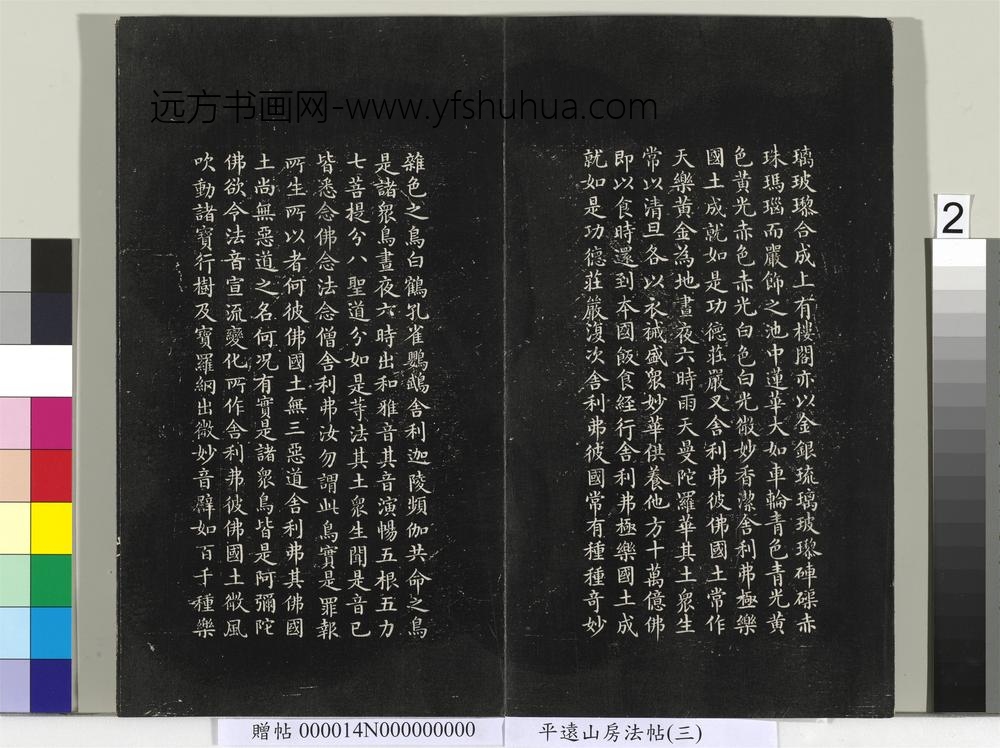 远方书画网-www.yfshuhua.com
璃玻瓈合成上有樓閣亦以金銀琉璃玻瓈硨磲赤
珠瑪瑙而嚴飾之池中蓮華大如車輪青色青光黄
色黄光赤色赤光白色白光微妙香潔舍利弗極樂
國土成就如是功德莊嚴又舍利弗彼佛國土常作
天樂黄金為地晝夜六時雨天曼陀羅華其土衆生
常以清旦各以衣祴盛衆妙華供養他方十萬億佛
即以食時還到本國飯食経行舍利弗極樂國土成
就如是功德莊嚴復次舍利弗彼國常有種種奇妙
雜色之鳥白鶴孔雀鸚鵡舍利迦陵頻伽共命之鳥
是諸衆鳥晝夜六時出和雅音其音演暢五根五力
七菩提分八聖道分如是等法其土衆生聞是音已
皆悉念佛念法念僧舍利弗汝勿謂此鳥實是罪報
所生所以者何彼佛國土無三惡道舍利弗其佛國
土尚無惡道之名何况有實是諸衆鳥皆是阿彌陀
佛欲令法音宣流變化所作舍利弗彼佛國土微風
吹動諸寶行樹及寶羅網出微妙音譬如百千種樂
2
贈帖 000014N000000000
平遠山房法帖(三)